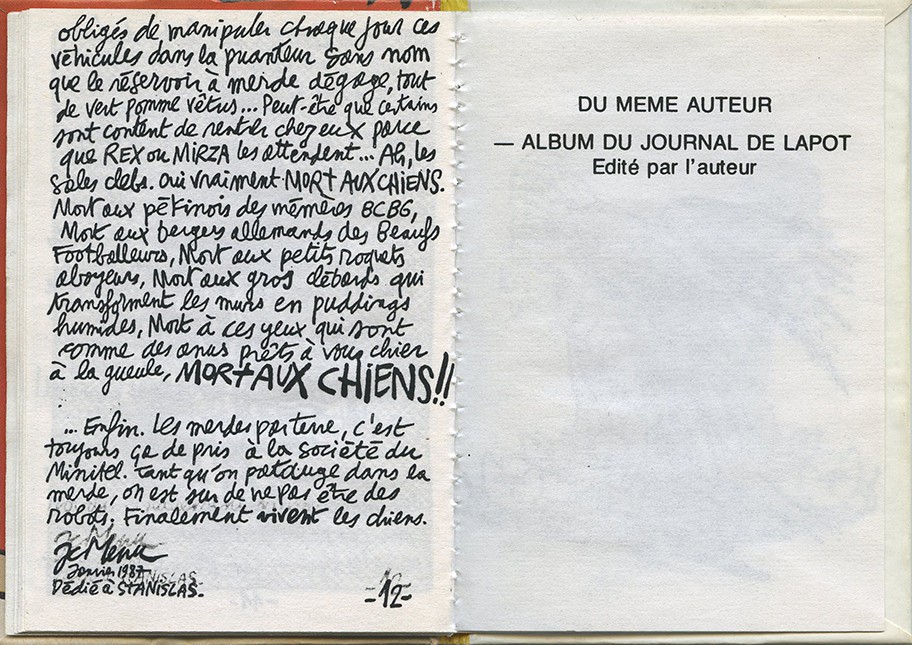 obligés de manipuler chaque jour ces
véhicules dans la puanteur sans nom
que le réservoir à merde dégage, tout
de vert pomme vêtus... Peut-être que certains
sont content de rentrer chez eux parce
que REX ou MIRZA les attendent... Ah, les
sales clebs. oui vraiment MORT AUX CHIENS.
Mort aux pékinois des mémères BCBG,
Mort aux bergers allemands des Beaufs
Footballeurs, Mort aux petits roquets
aboyeurs, Mort aux gros clébards qui
transforment les murs en puddings
humides, Mort à ces yeux qui sont
comme des anus prêts à vous chier
à la gueule, MORT AUX CHIENS!!
... Enfin. Les merdes par terre, c'est
toujours ça de pris à la Société du
Minitel. Tant qu'on patauge dans la
merde, on est sur de ne pas être des
robots. Finalement vivent les chiens.
JC Menu
Janvier 1987
Dédié à STANISLAS.
-12-
DU MEME AUTEUR
— ALBUM DU JOURNAL DE LAPOT
Edité par l'auteur